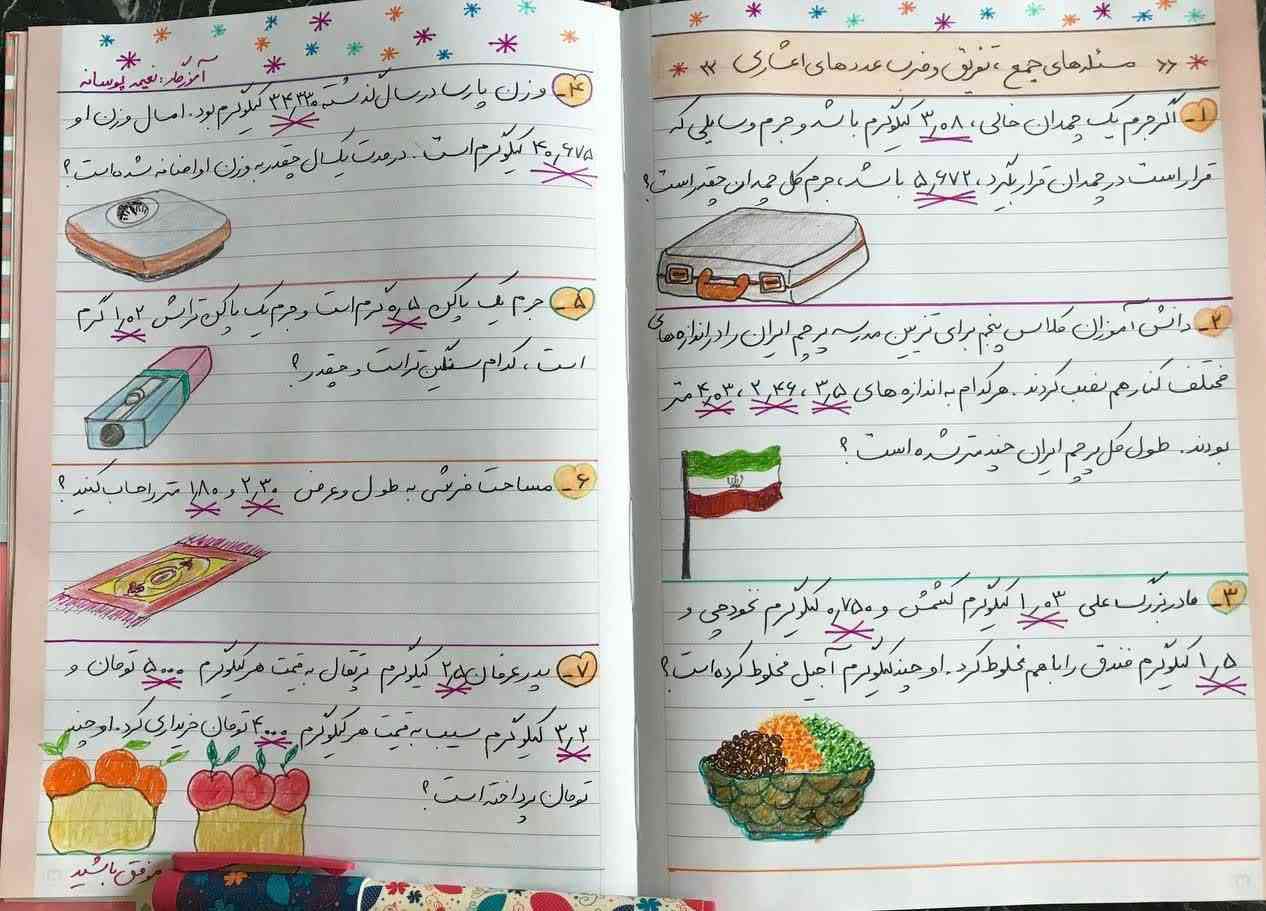 « مسئله‌های جمع، تفریق و ضرب عددهای اعشاری »
۱- اگر جرم یک چمدان خالی، ۳٫۰۸ کیلوگرم باشد و جرم وسایلی که
قرار است در چمدان قرار بگیرد، ۵٫۶۷۲ باشد، جرم کل چمدان چقدر است؟
۲- دانش آموزان کلاس پنجم برای تزیین مدرسه پرچم ایران را در اندازه های
مختلف کنار هم نصب کردند. هرکدام به اندازه های ۳٫۵ ، ۲٫۴۶ ، ۴٫۰۳ متر
بودند. طول کل پرچم ایران چند متر شده است؟
۳- مادربزرگ علی ۱٫۰۳ کیلوگرم کشمش و ۰٫۷۵۰ کیلوگرم نخودچی و
۱٫۵ کیلوگرم فندق را با هم مخلوط کرد. او چند کیلوگرم آجیل مخلوط کرده است؟
آموزگار: نعیمه پوستانه
۴- وزن پارسا در سال گذشته ۳۴٫۲۳۰ کیلوگرم بود. امسال وزن او
۴۰٫۶۷۵ کیلوگرم است. در مدت یکسال چقدر به وزن او اضافه شده است؟
۵- جرم یک پاکن ۰٫۵ گرم است و جرم یک پاکن تراش ۱٫۰۲ گرم
است، کدام سنگین تر است و چقدر؟
۶- مساحت فرشی به طول و عرض ۲٫۳۰ و ۱٫۸۰ متر را حساب کنید؟
۷- پدر عرفان ۲٫۵ کیلوگرم پرتقال به قیمت هر کیلوگرم ۵۰۰۰ تومان و
۳٫۲ کیلوگرم سیب به قیمت هر کیلوگرم ۴۰۰۰ تومان خریداری کرد. او چند
تومان پرداخته است؟
موفق باشید